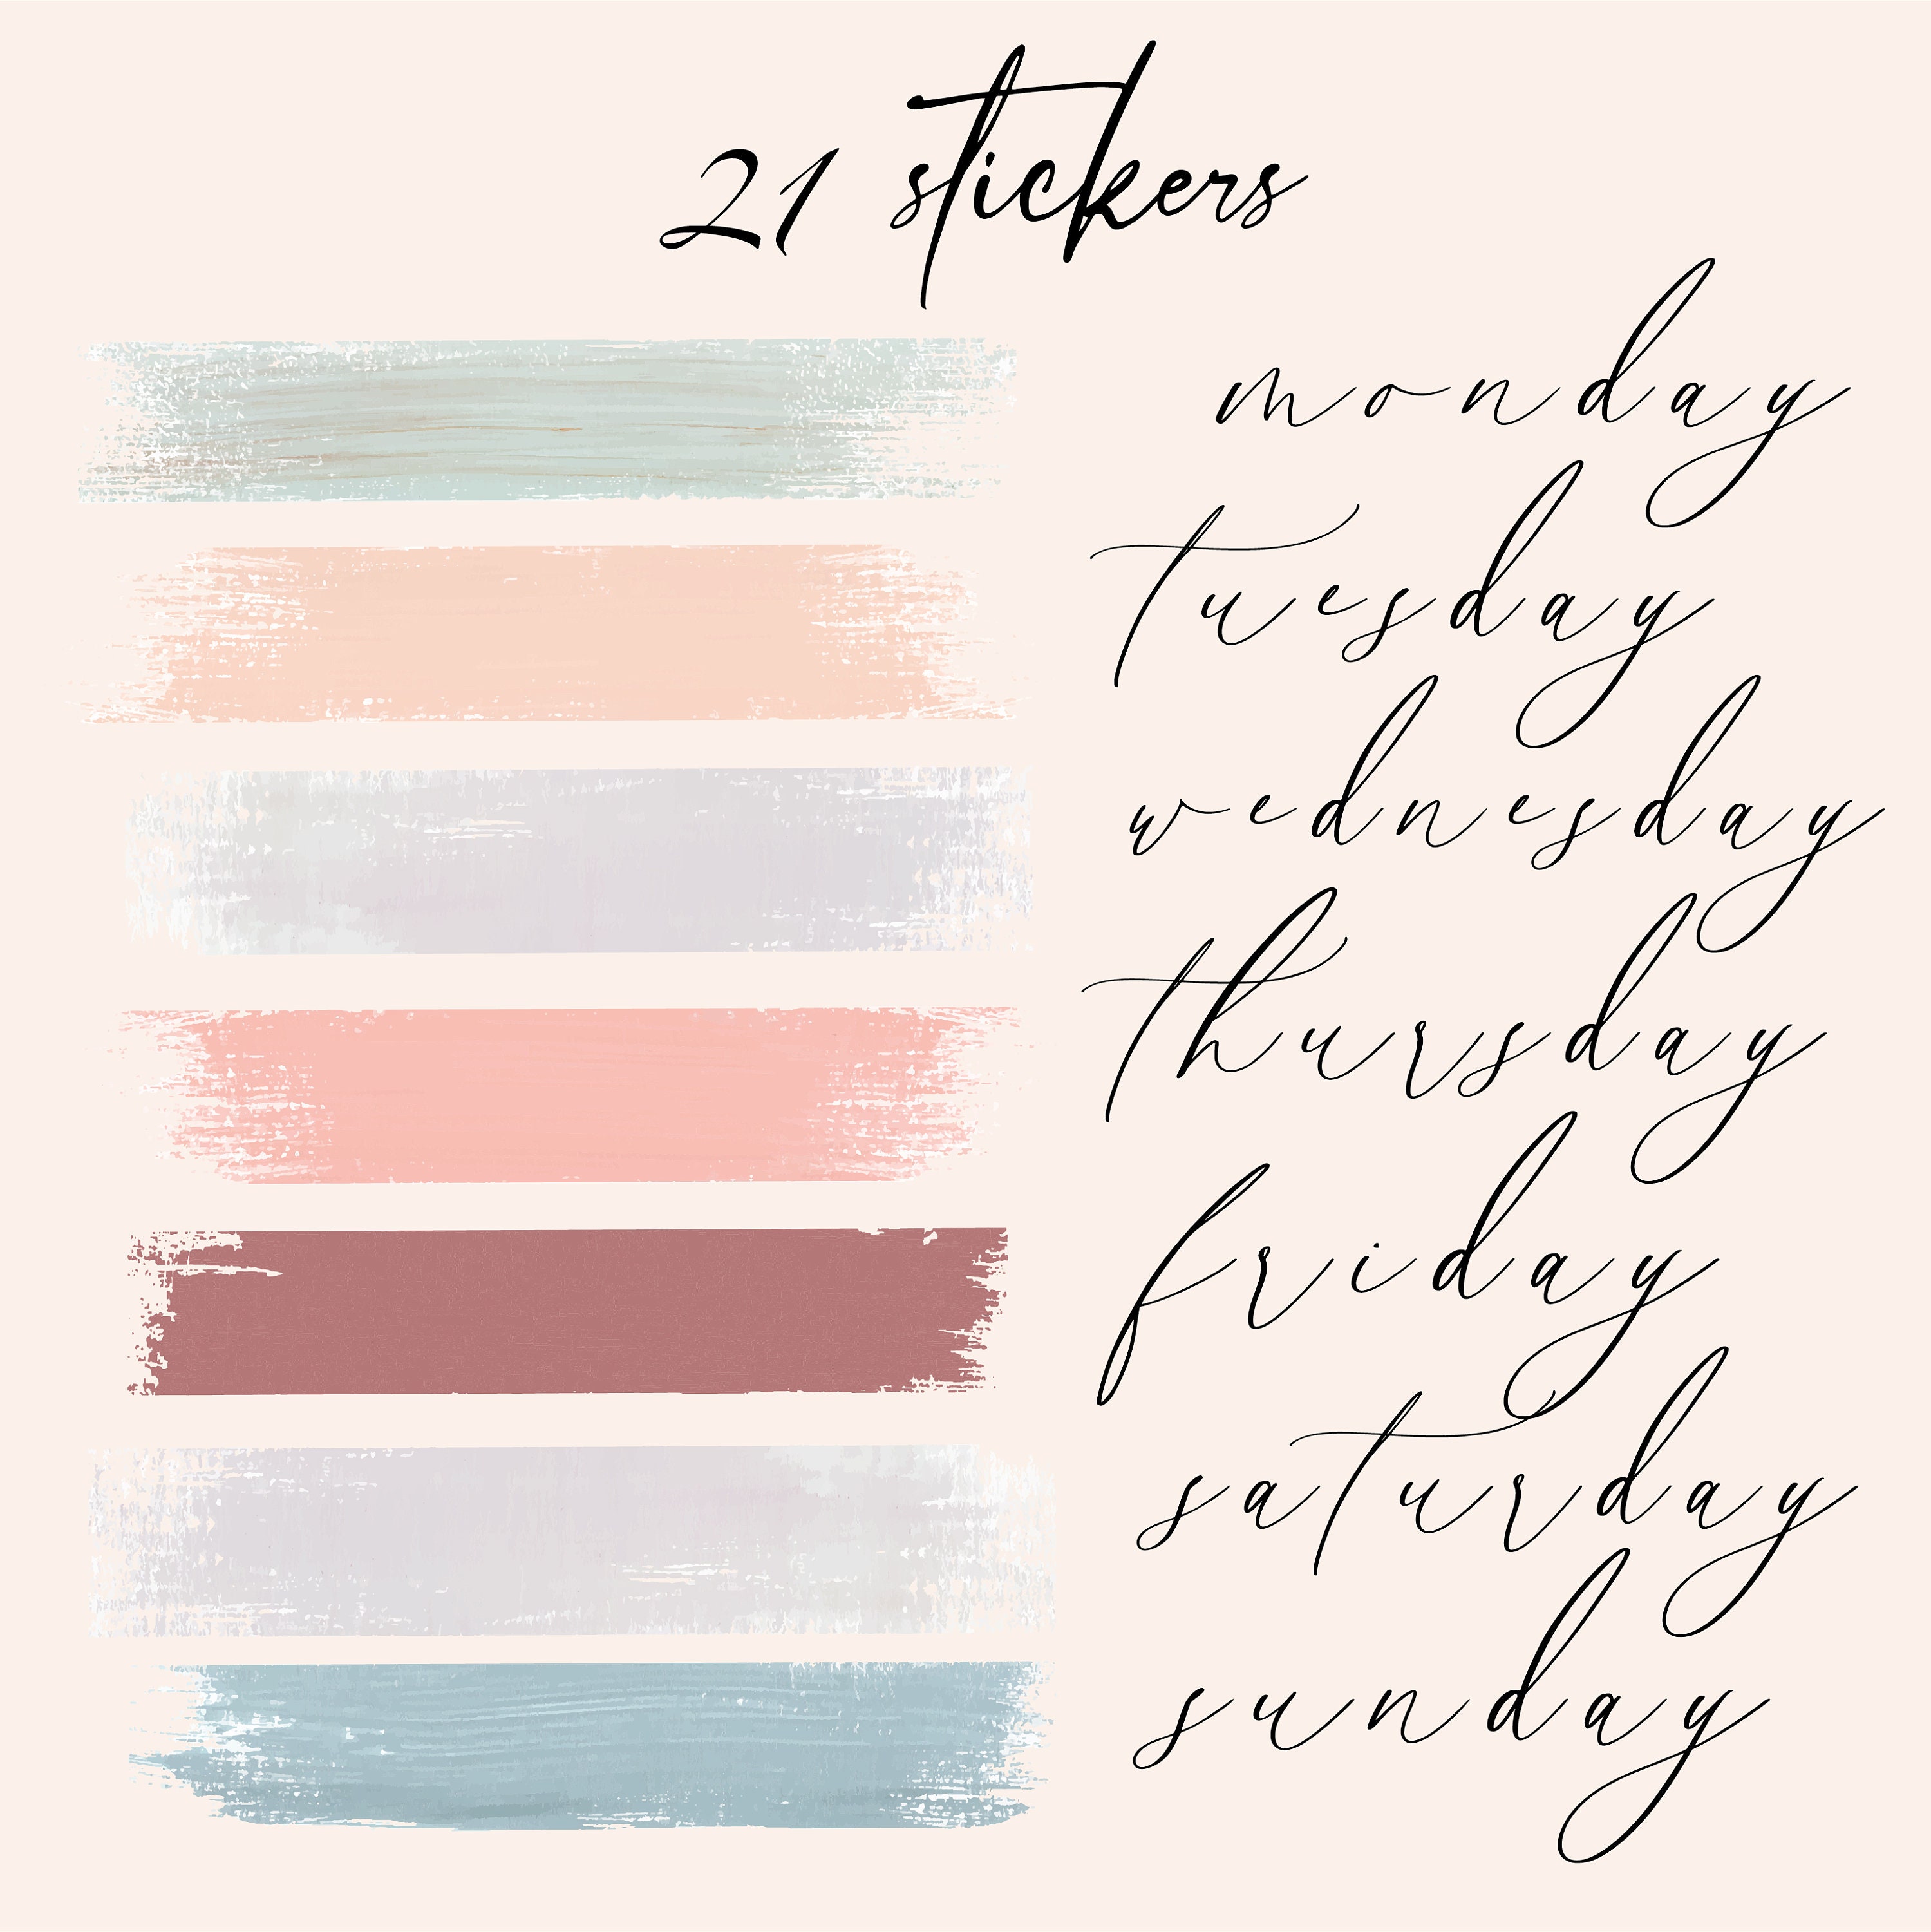 21 stickers
monday
tuesday
wednesday
thursday
friday
saturday
sunday